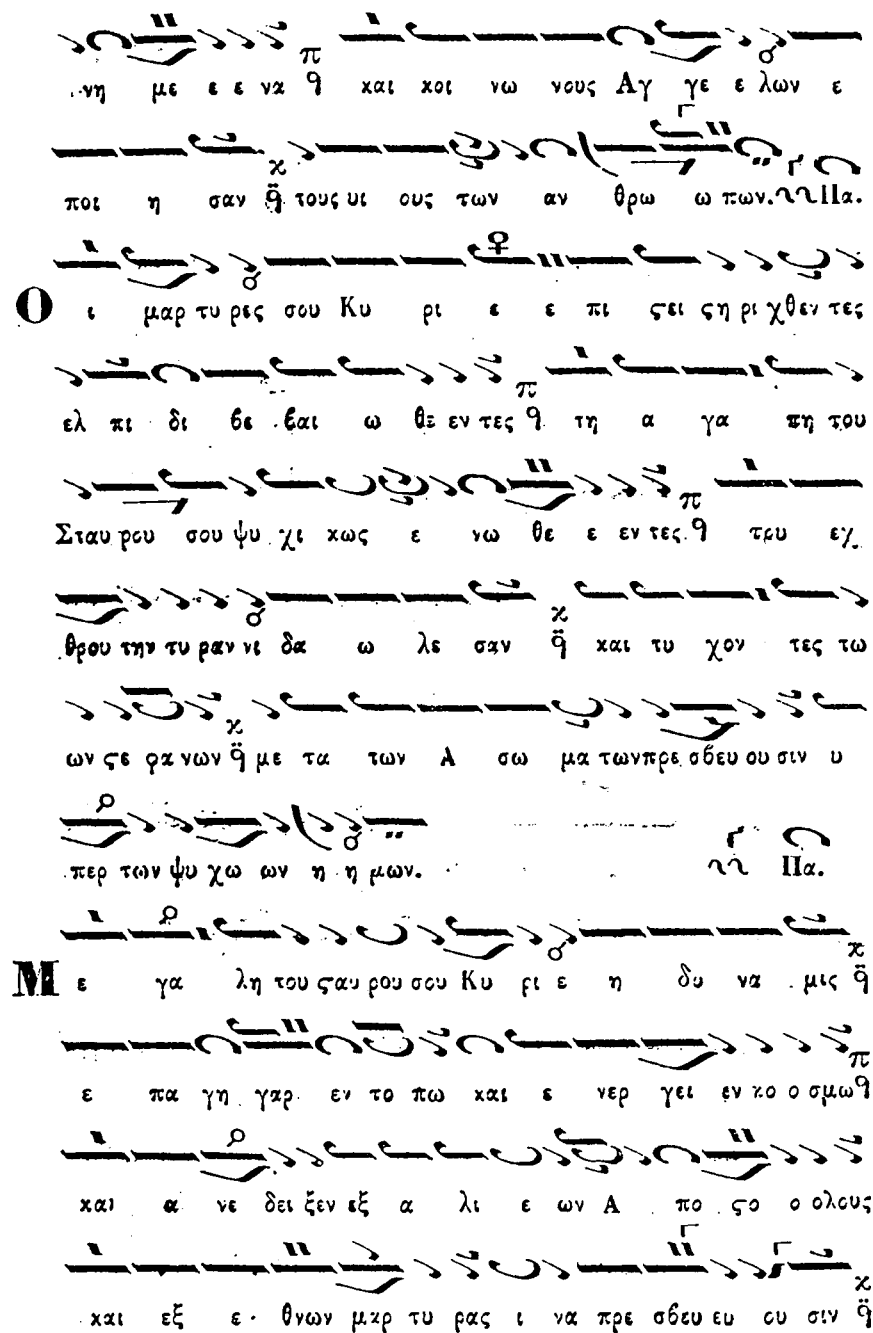 νη με ε ε να π ϙ και κοι νω νους Αγ γε ε λων ε
ποι η σαν κ ϙ̈ τους υι ους των αν θρω ω πων. Πα.
Ο ι μαρ τυ ρες σου Κυ ρι ε ε πι ϛει ϛη ρι χθεν τες
ελ πι δι βε βαι ω θε εν τες π ϙ τη α γα πη του
Σταυ ρου σου ψυ χι κως ε νω θε ε εν τες. π ϙ του εχ
θρου την τυ ραν νι δα ω λε σαν κ ϙ̈ και τυ χον τες τω
ων ϛε φα νων κ ϙ̈ με τα των Α σω μα των πρε σβευ ου σιν υ
περ των ψυ χω ων η η μων. Πα.
Μ ε γα λη του ϛαυ ρου σου Κυ ρι ε η δυ να μις κ ϙ̈
ε πα γη γαρ εν το πω και ε νερ γει εν κο ο σμω π ϙ
και α νε δει ξεν εξ α λι ε ων Α πο ϛο ο ολους
και εξ ε θνων μαρ τυ ρας ι να πρε σβευ ευ ου σιν κ ϙ̈